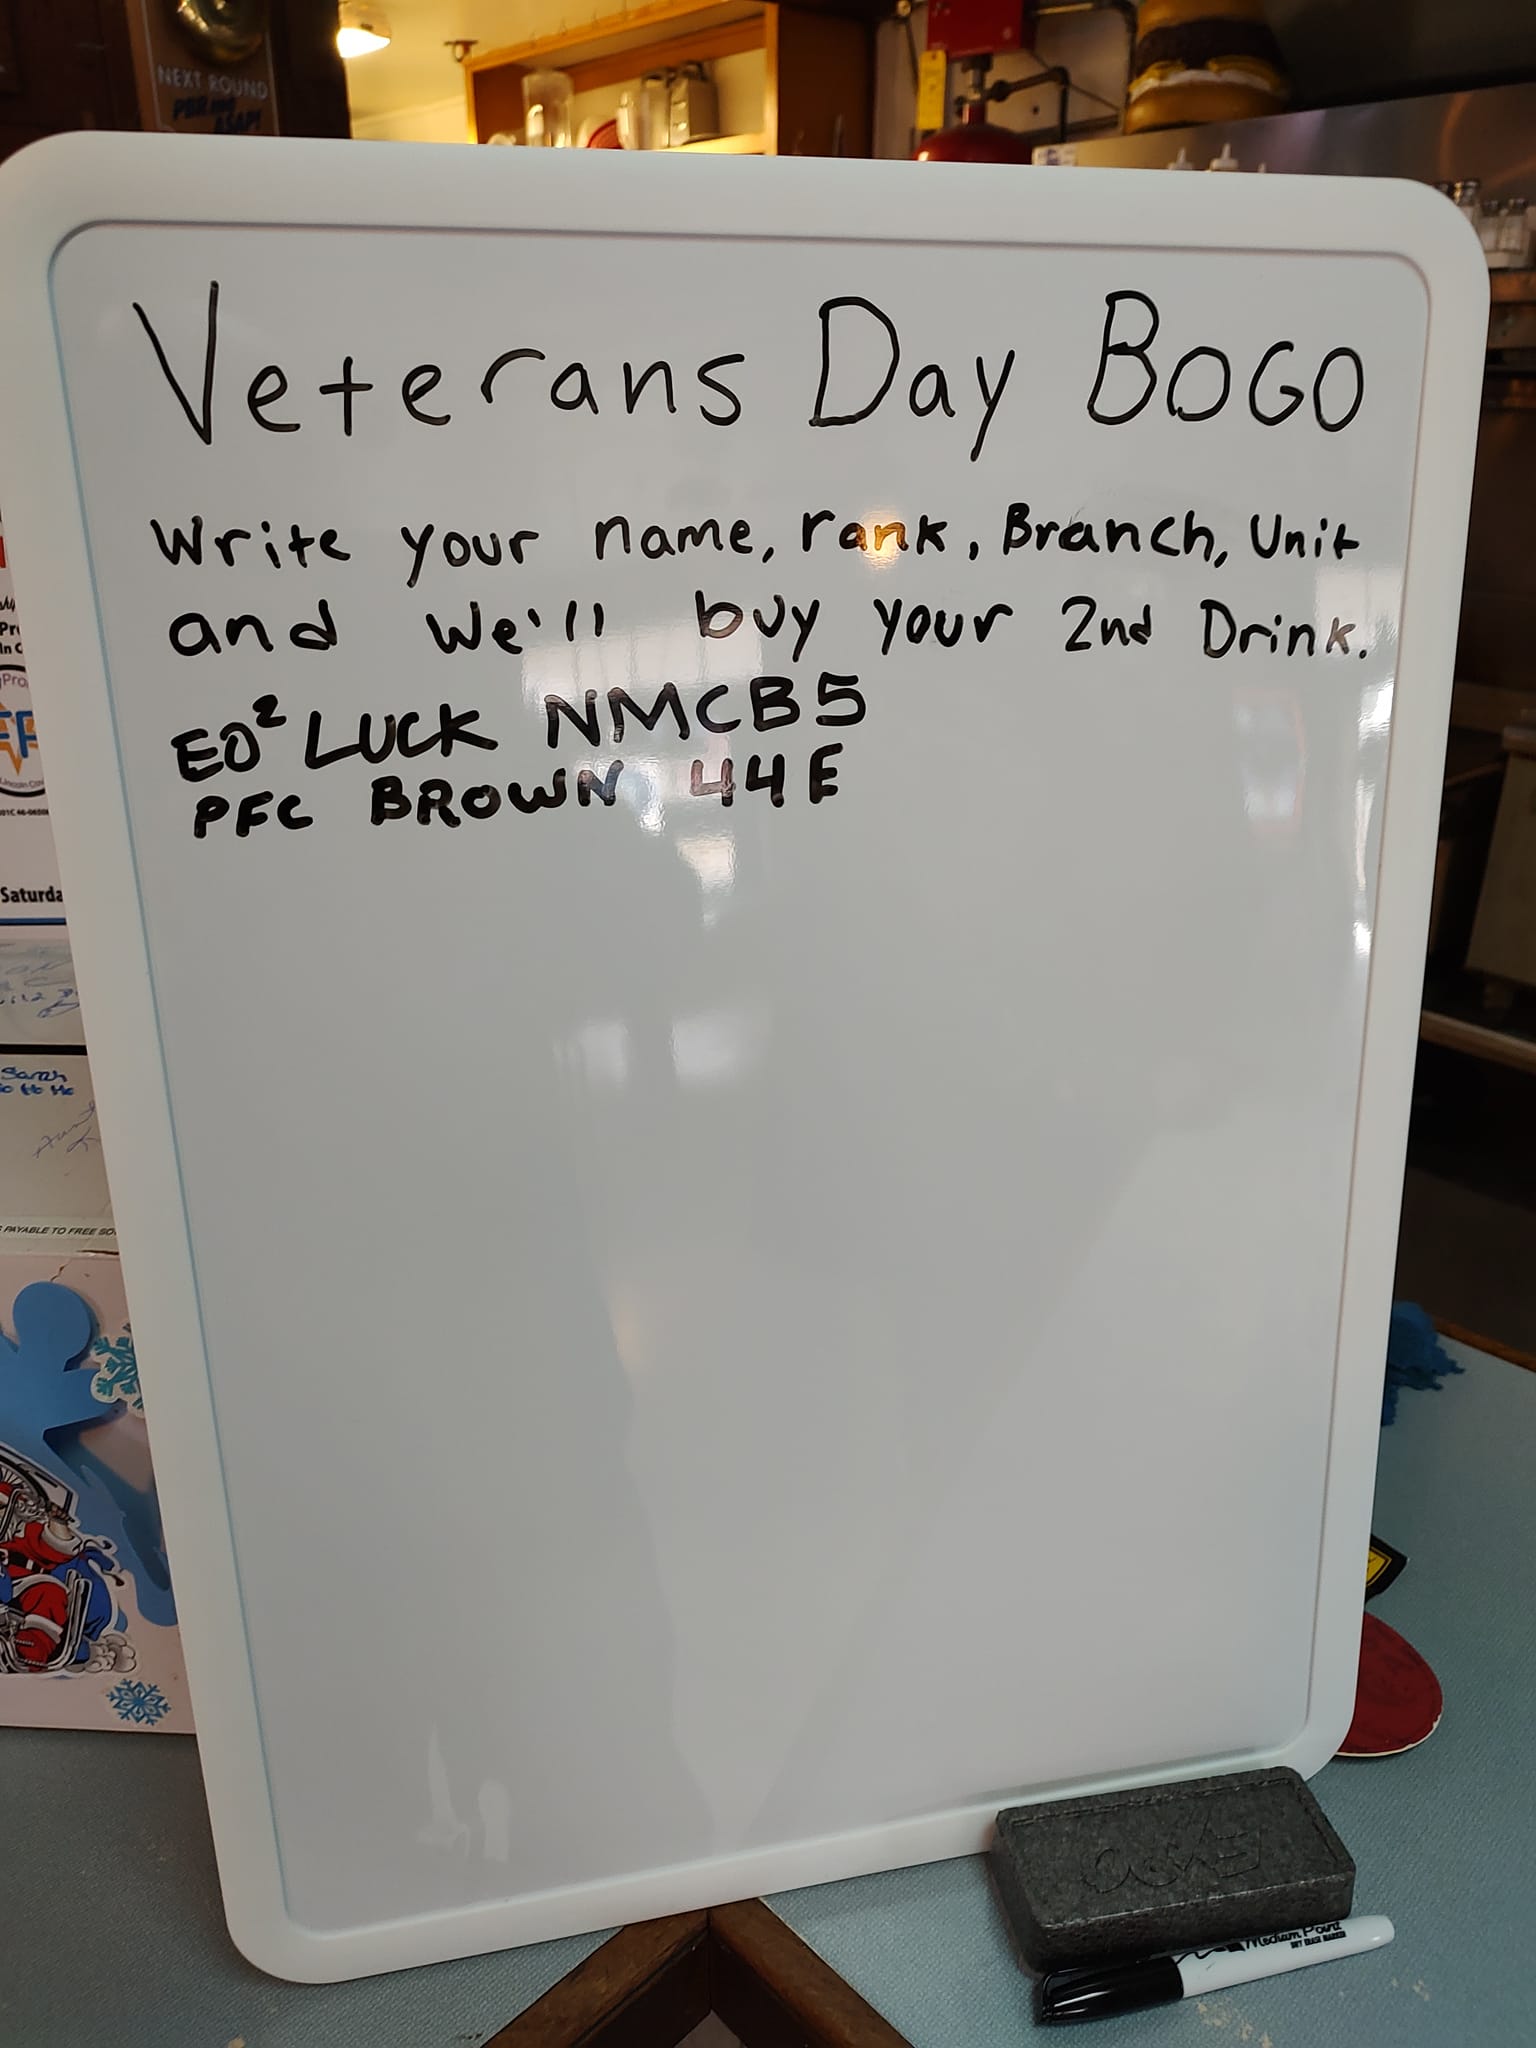 NEXT ROUND
PBR me
ASAP!
Veterans Day BOGO
Write your name, rank, Branch, Unit
and we'll buy your 2nd Drink.
EO² LUCK NMCB5
PFC BROWN 44E
Saturda
Sarah
Ho Ho Ho
PAYABLE TO FREE SO
EXPO
Medium Point
DRY ERASE MARKER